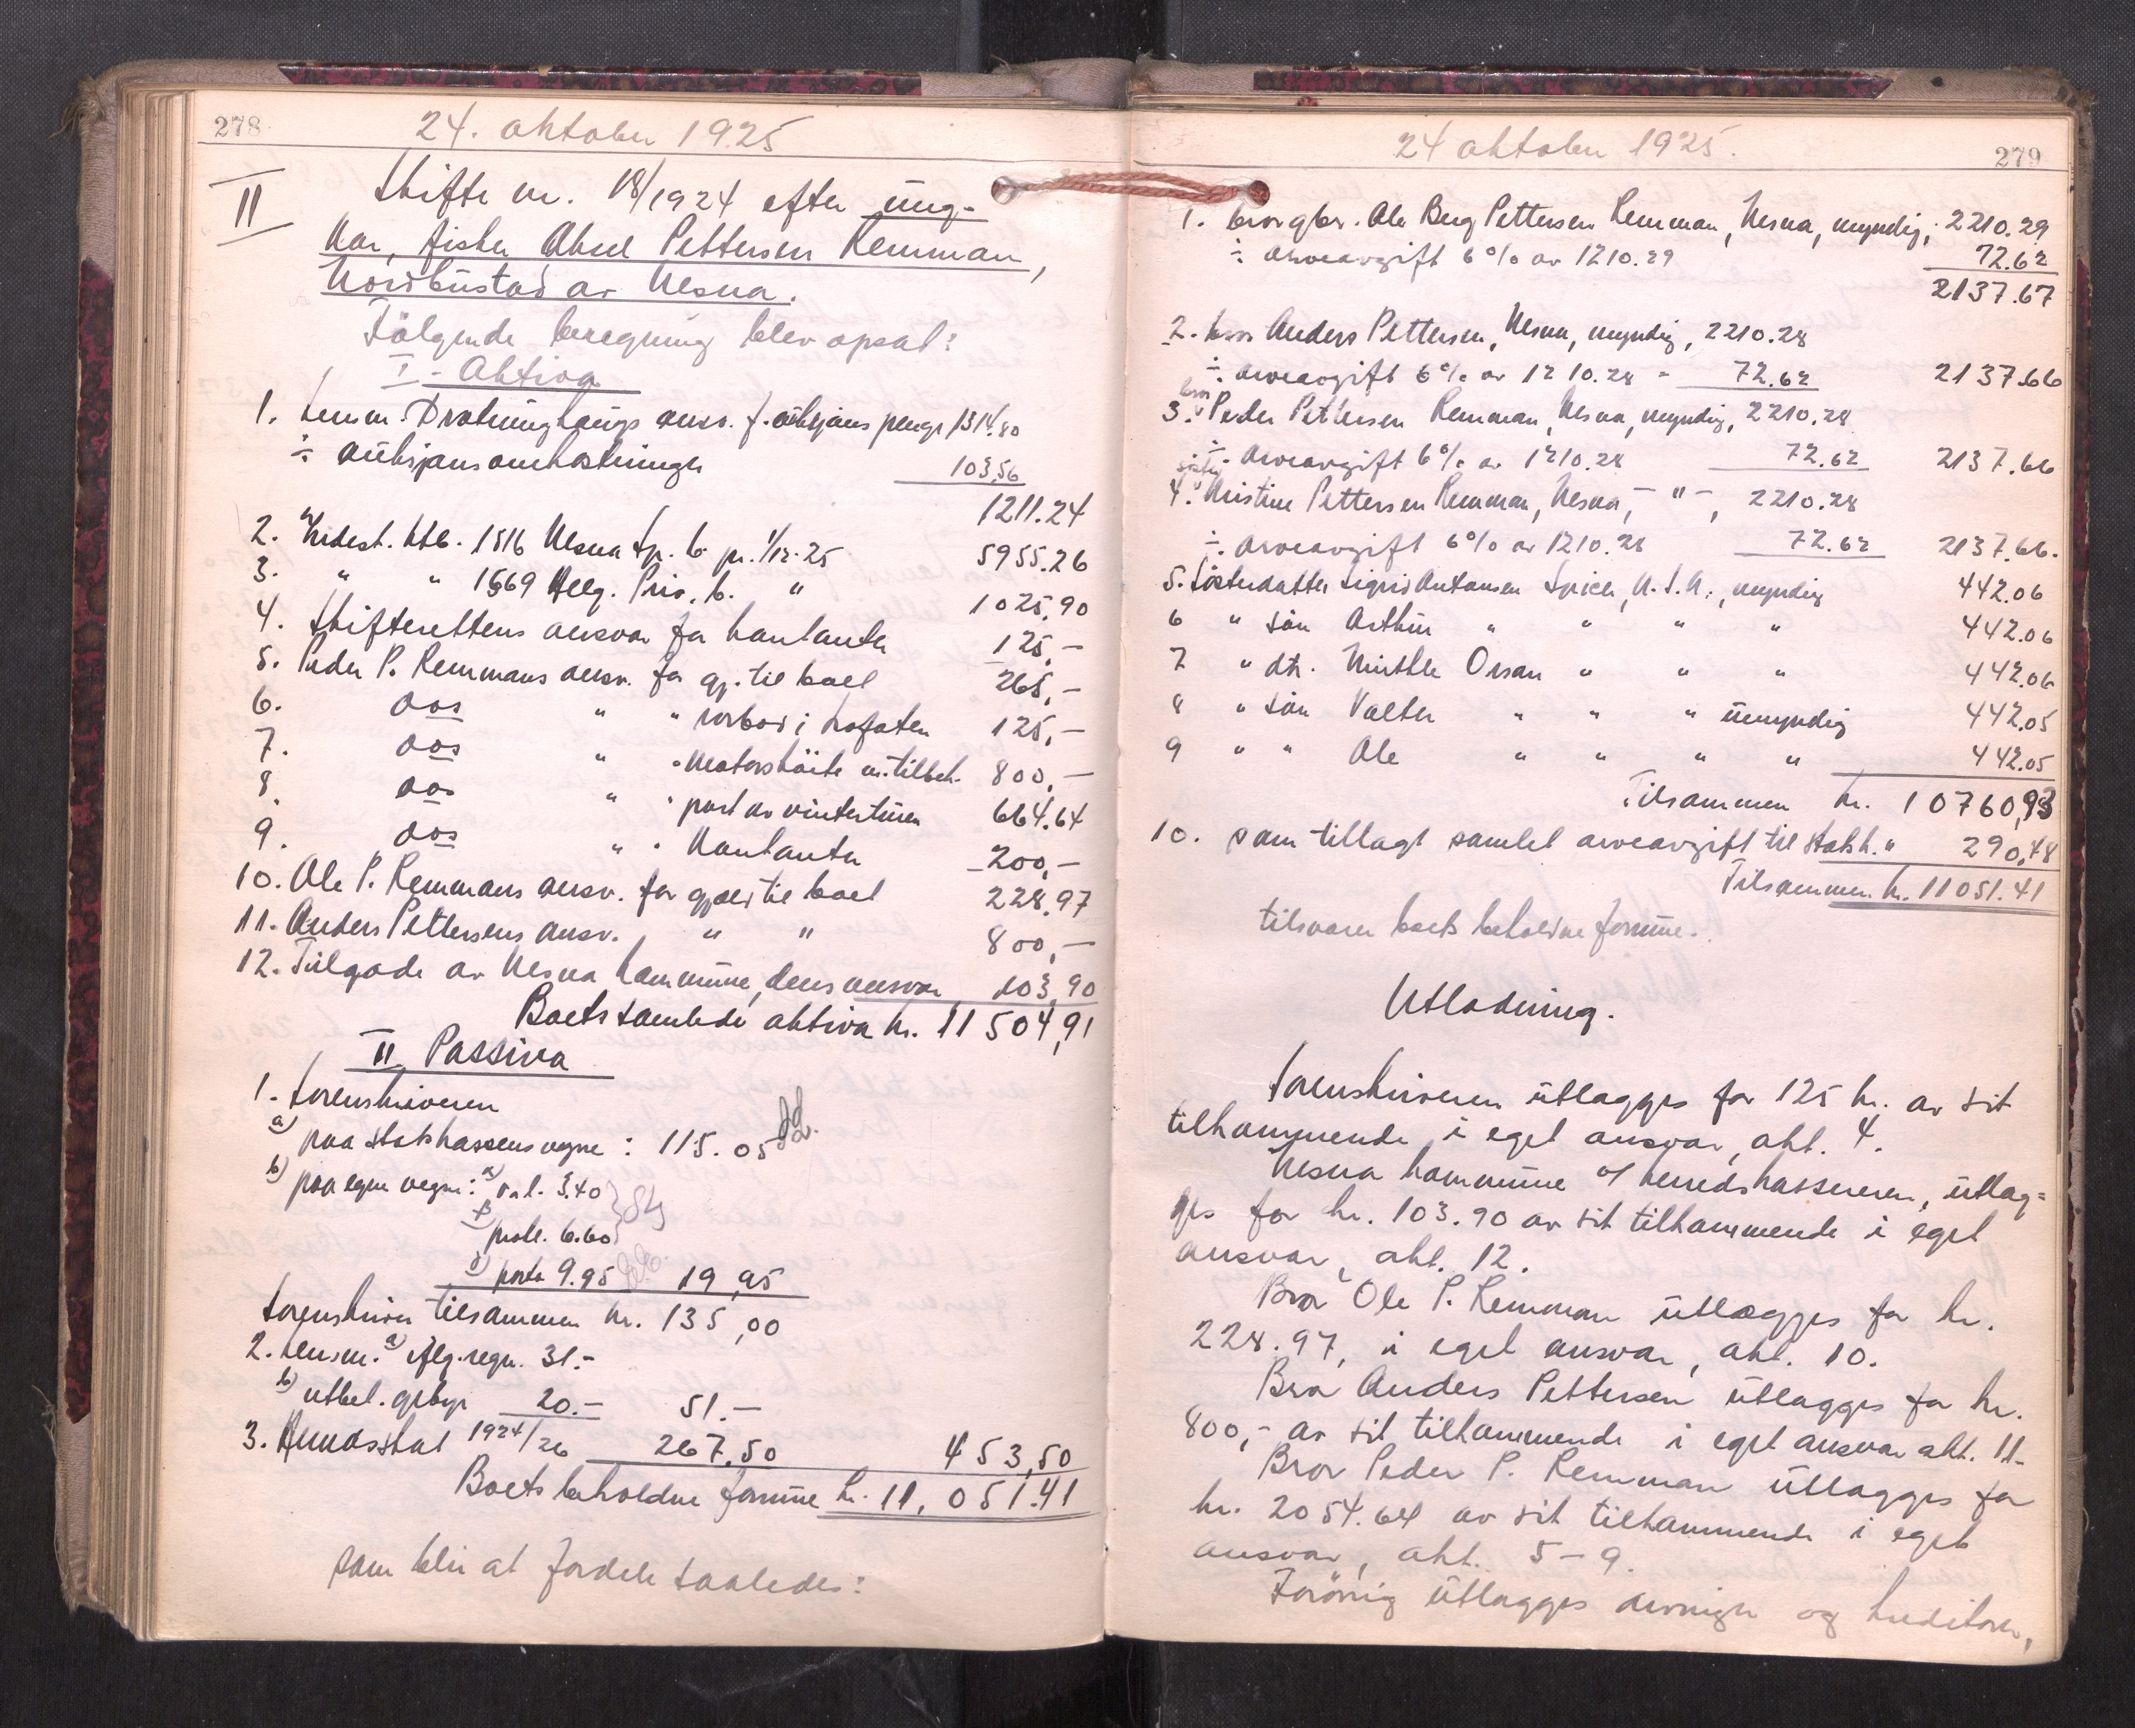 278
24. oktober 1925
II
Skifte nr. 18/1924 efter ung-
kar, fisker Aksel Pettersen Remman,
Nordbustad av Nesna.
Følgende beregning blev opsat:
I. Aktiva
1. Lensm. Dratninghaugs ansv. f. auksjons penge 1314.80
÷ auksjonsomkostninger 103.56
1211.24
2. Indest. ktb. 1516 Nesna Sp. b. pr. 1/12-25 5955.26
3. " " 1569 Helg. Priv. b. " 1025.90
4. Skifterettens ansvar for kontanter 125,-
5. Peder P. Remmans ansv. for gj. til boet 265,-
6. dos " " rorbod i Lofoten 125,-
7. dos " " Motorskøite m. tilbeh. 800,-
8. dos " " part av vinterturen 664.64
9. dos " " Kontanter 200,-
10. Ole P. Remmans ansv. for gjæld til boet 228.97
11. Anders Pettersens ansv. " " 800,-
12. Tilgode av Nesna kommune, dens ansvar 103,90
Boets samlede aktiva kr. 11504,91
II Passiva
1. Sorenskriveren
a) paa statskassens vegne: 115.05
b) paa egne vegne: a) 3.40
β) prot. 6.60
porto 9.95 19,95
Sorenskriver tilsammen kr. 135,00
2. Lensm. a) regn. 31.-
b) utbet. gebyr 20.- 51.-
3. 1924/26 267.50 453,50
Boets beholdne formue kr. 11,051.41
som blir at fordele saaledes:
24 oktober 1925.
279
1. bror gbr. Ole Berg Pettersen Remman, Nesna, myndig, 2210.29
÷ arveavgift 6% av 1210.29 72.62
2137.67
2. bror Anders Pettersen, Nesna, myndig, 2210.28
÷ arveavgift 6% av 1210.28 - 72.62 2137.66
3. bror Peder Pettersen Remman, Nesna, myndig, 2210.28
÷ arveavgift 6% av 1210.28 72.62 2137.66
4. Kristine Pettersen Remman, Nesna, - " -, 2210.28
÷ arveavgift 6% av 1210.28 72.62 2137.66.
5. Søsterdatter Sigrid Antonsen Spicer, U.S.A., myndig 442.06
6 " søn Arthur " " " " 442.06
7 " dtr. Orsan " " " 442.06
8 " søn Valter " " " umyndig 442.05
9 " " Ole " " " " 442.05
Tilsammen kr. 10760,93
10. som tillagt samlet arveavgift til statsk. " 290,48
Tilsammen kr. 11051.41
tilsvarer boets beholdne formue.
Utlodning.
Sorenskriveren utlægges for 125 kr. av sit
tilkommende i eget ansvar, akt. 4.
Nesna kommune v/ herredskassereren, utlæg=
ges for kr. 103.90 av sit tilkommende i eget
ansvar, akt. 12.
Bror Ole P. Remman utlægges for kr.
228.97, i eget ansvar, akt. 10.
Bror Anders Pettersen utlægges for kr.
800,- av sit tilkommende i eget ansvar akt. 11-
Bror Peder P. Remman utlægges for
kr. 2054.64 av sit tilkommende i eget
ansvar, akt. 5-9.
Forøvrig utlægges arvinger og kreditorer,